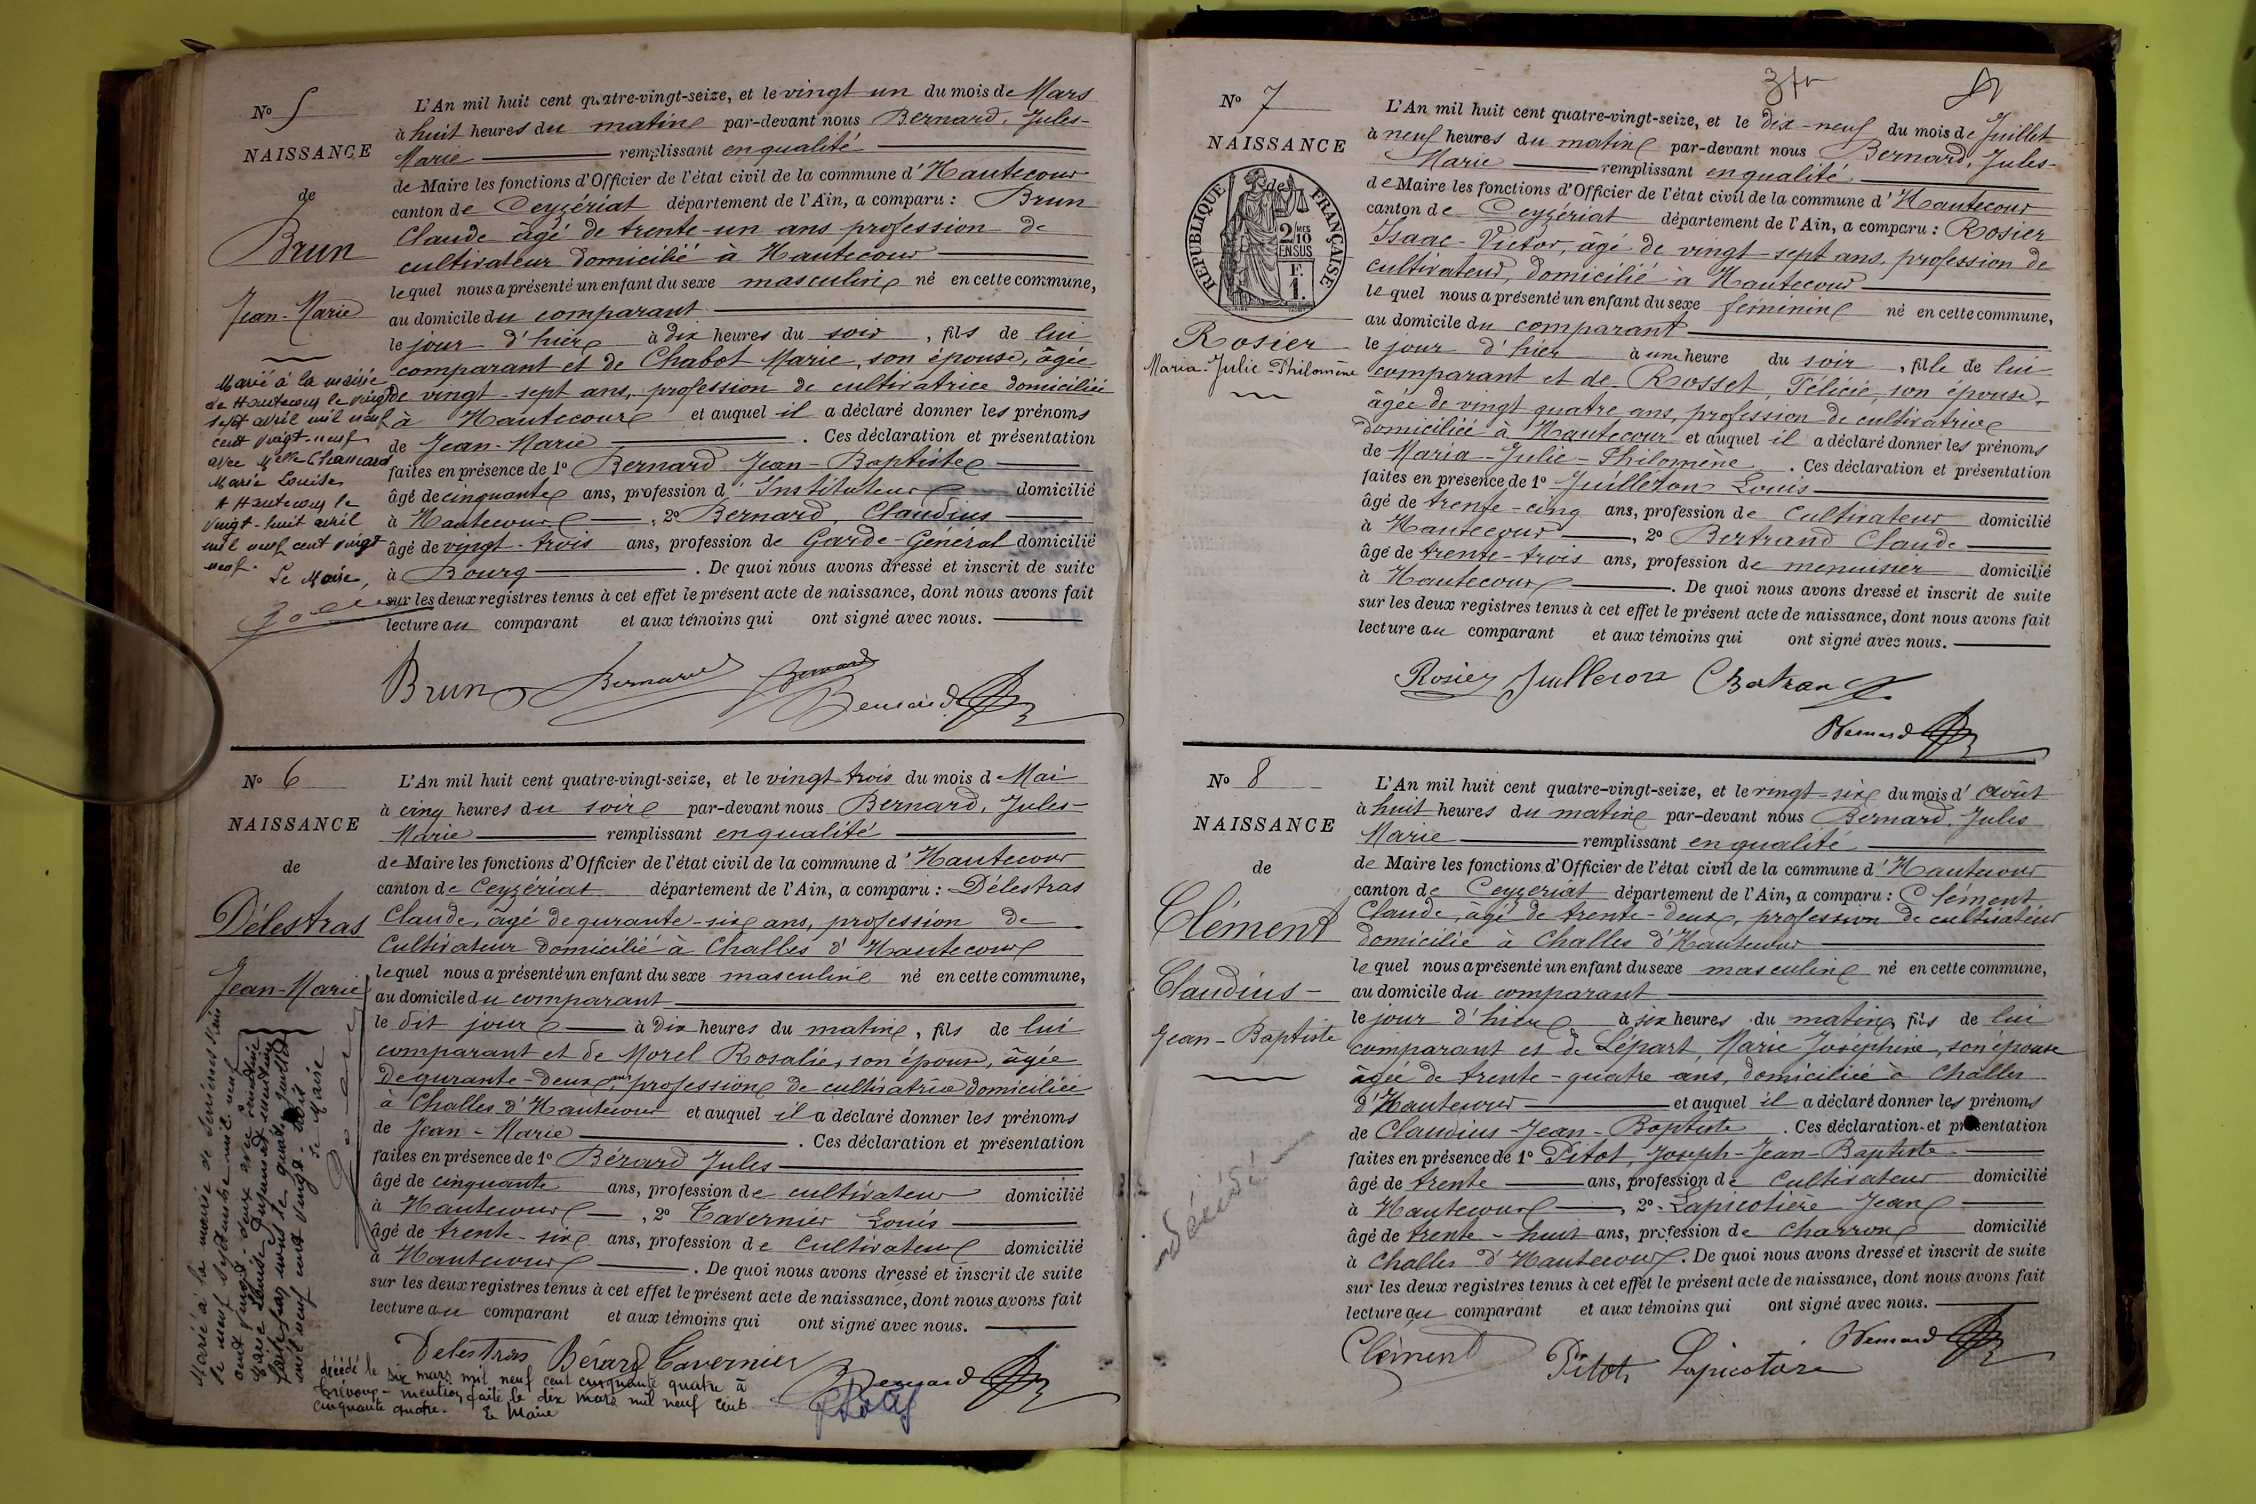 N° 5
NAISSANCE
de
Brun
Jean-Marie
Marié à la mairie
de Hautecour le vingt
sept avril mil neuf
cent vingt-neuf
avec Melle
Marie Louise
A Hautecour le
vingt-huit avril
mil neuf cent vingt
neuf.
Le Maire,
L'An mil huit cent quatre-vingt-seize, et le vingt un du mois de Mars
à huit heures du matin par-devant nous Bernard, Jules-
Marie remplissant en qualité
de Maire les fonctions d'Officier de l'état civil de la commune d'Hautecour
canton de Ceyzériat département de l'Ain, a comparu : Brun
Claude âgé de trente-un ans profession de
cultivateur domicilié à Hautecour
lequel nous a présenté un enfant du sexe masculin né en cette commune,
au domicile du comparant
le jour d'hier à dix heures du soir, fils de lui
comparant et de Chabot Marie, son épouse, âgée
de vingt-sept ans, profession de cultivatrice domiciliée
à Hautecour et auquel il a déclaré donner les prénoms
de Jean-Marie. Ces déclaration et présentation
faites en présence de 1° Bernard Jean-Baptiste
âgé de cinquante ans, profession d'Instituteur domicilié
à Hautecour, 2° Bernard Claudius
âgé de vingt-trois ans, profession de Garde-Général domicilié
à Bourg. De quoi nous avons dressé et inscrit de suite
sur les deux registres tenus à cet effet le présent acte de naissance, dont nous avons fait
lecture au comparant et aux témoins qui ont signé avec nous.
Brun Bernard Bernard
Bernard
N° 6
NAISSANCE
de
Délestras
Jean-Marie
Marié à la mairie de
le neuf septembre mil neuf
cent vingt-deux avec
Marie Louise
mil neuf cent vingt-trois
Le Maire
L'An mil huit cent quatre-vingt-seize, et le vingt-trois du mois de Mai
à cinq heures du soir par-devant nous Bernard, Jules-
Marie remplissant en qualité
de Maire les fonctions d'Officier de l'état civil de la commune d'Hautecour
canton de Ceyzériat département de l'Ain, a comparu : Délestras
Claude, âgé de qurante-six ans, profession de
cultivateur domicilié à Challes d'Hautecour
lequel nous a présenté un enfant du sexe masculin né en cette commune,
au domicile du comparant
le dit jour à dix heures du matin, fils de lui
comparant et de Morel Rosalie, son épouse, âgée
de qurante-deux ans profession de cultivatrice domiciliée
à Challes d'Hautecour et auquel il a déclaré donner les prénoms
de Jean-Marie. Ces déclaration et présentation
faites en présence de 1° Bérard Jules
âgé de cinquante ans, profession de cultivateur domicilié
à Hautecour, 2° Tavernier Louis
âgé de trente-six ans, profession de cultivateur domicilié
à Hautecour. De quoi nous avons dressé et inscrit de suite
sur les deux registres tenus à cet effet le présent acte de naissance, dont nous avons fait
lecture au comparant et aux témoins qui ont signé avec nous.
Delestras Bérard Tavernier
Bernard
décédé le six mars mil neuf cent cinquante quatre à
Trévoux - mention faite le dix mars mil neuf cent
cinquante quatre. Le Maire
3fr
N° 7
NAISSANCE
de
RÉPUBLIQUE FRANÇAISE
2 MES
10
EN SUS
1 F.
Rosier
Maria-Julie Philomène
L'An mil huit cent quatre-vingt-seize, et le dix-neuf du mois de Juillet
à neuf heures du matin par-devant nous Bernard, Jules-
Marie remplissant en qualité
de Maire les fonctions d'Officier de l'état civil de la commune d'Hautecour
canton de Ceyzériat département de l'Ain, a comparu : Rosier
Isaac-Victor, âgé de vingt-sept ans, profession de
cultivateur, domicilié à Hautecour
lequel nous a présenté un enfant du sexe féminin né en cette commune,
au domicile du comparant
le jour d'hier à une heure du soir, fille de lui
comparant et de Rosset, Félicie, son épouse,
âgée de vingt quatre ans, profession de cultivatrice
domiciliée à Hautecour et auquel il a déclaré donner les prénoms
de Maria-Julie-Philomène. Ces déclaration et présentation
faites en présence de 1° Juilleron Louis
âgé de trente-cinq ans, profession de cultivateur domicilié
à Hautecour, 2° Bertrand Claude
âgé de trente-trois ans, profession de menuisier domicilié
à Hautecour. De quoi nous avons dressé et inscrit de suite
sur les deux registres tenus à cet effet le présent acte de naissance, dont nous avons fait
lecture au comparant et aux témoins qui ont signé avec nous.
Rosier Juilleron C Bertrand
Bernard
N° 8
NAISSANCE
de
Clément
Claudius-
Jean-Baptiste
L'An mil huit cent quatre-vingt-seize, et le vingt-six du mois d'Août
à huit heures du matin par-devant nous Bernard, Jules
Marie remplissant en qualité
de Maire les fonctions d'Officier de l'état civil de la commune d'Hautecour
canton de Ceyzeriat département de l'Ain, a comparu : Clément
Claude, âgé de trente-deux, profession de cultivateur
domicilié à Challes d'Hautecour
lequel nous a présenté un enfant du sexe masculin né en cette commune,
au domicile du comparant
le jour d'hier à six heures du matin, fils de lui
comparant et de Lépart, Marie Joséphine, son épouse
âgée de trente-quatre ans, domiciliée à Challes
d'Hautecour et auquel il a déclaré donner les prénoms
de Claudius-Jean-Baptiste. Ces déclaration et présentation
faites en présence de 1° Pitot, Joseph-Jean-Baptiste
âgé de trente ans, profession de cultivateur domicilié
à Hautecour, 2° Lapicotière Jean
âgé de trente-huit ans, profession de charron domicilié
à Challes d'Hautecour. De quoi nous avons dressé et inscrit de suite
sur les deux registres tenus à cet effet le présent acte de naissance, dont nous avons fait
lecture au comparant et aux témoins qui ont signé avec nous.
Clément Pitot Lapicotière Bernard